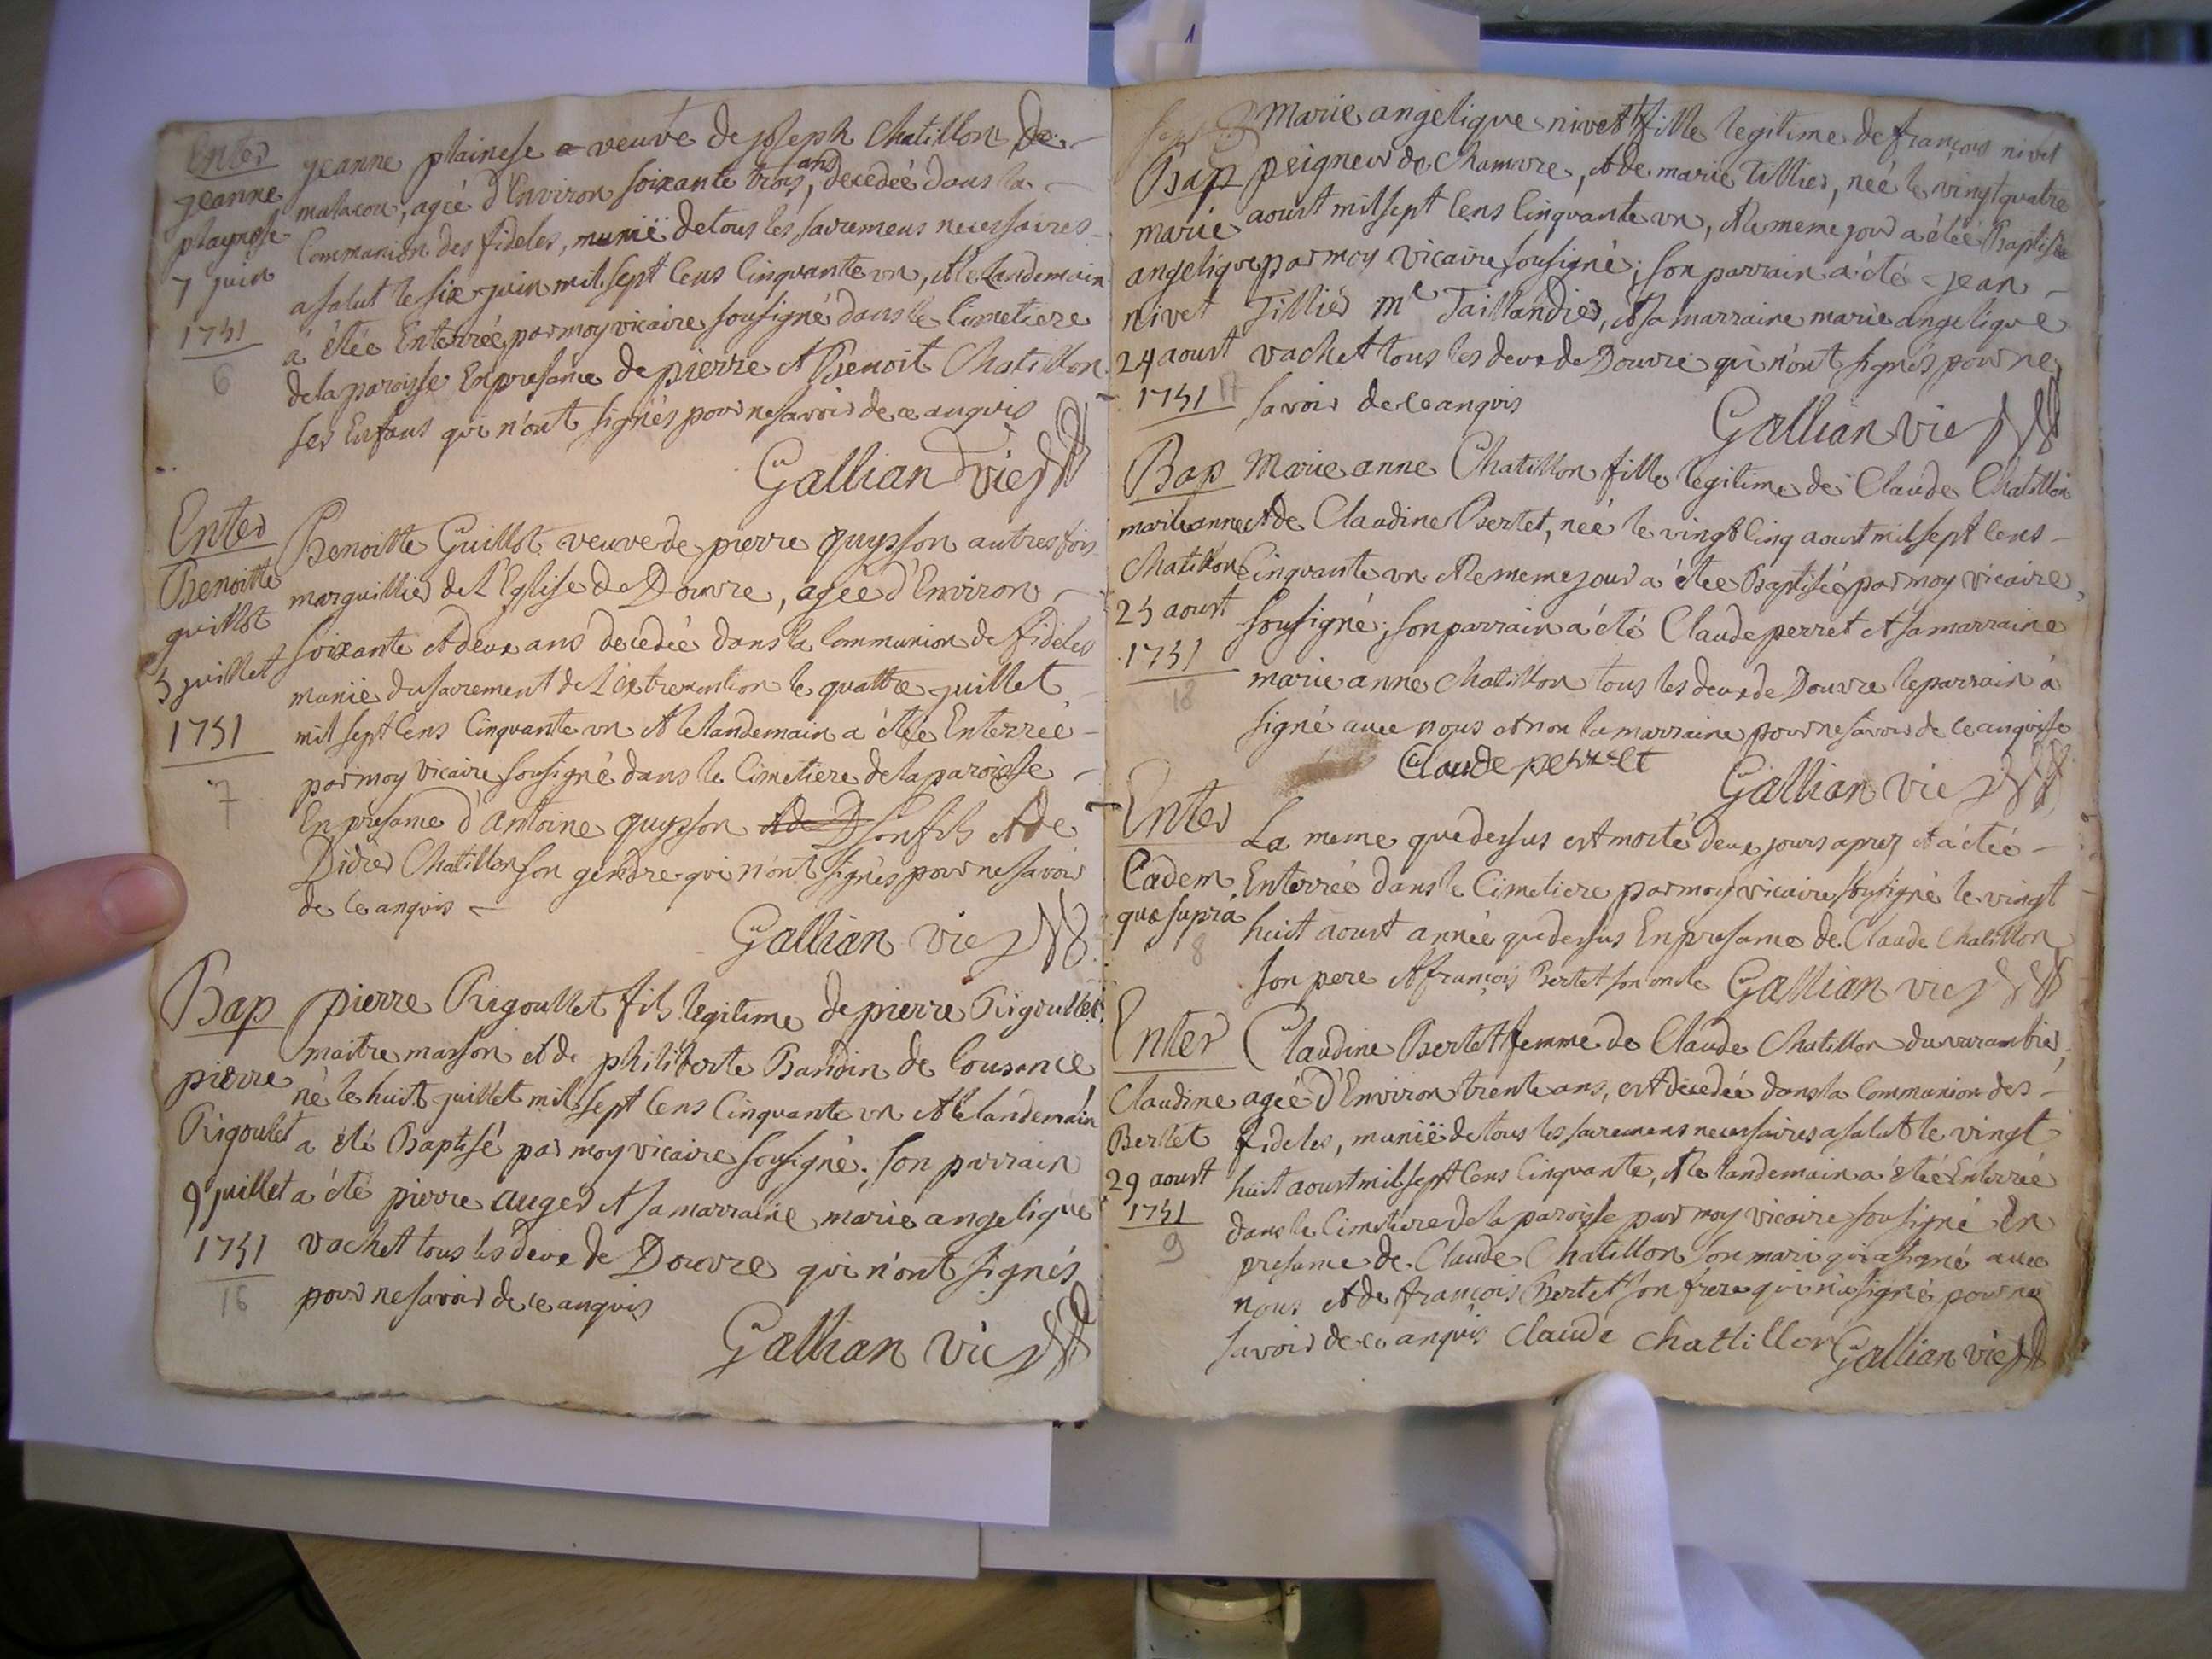 Enter
jeanne
playnese
7 juin
1751
6
jeanne plainese veuve de joseph Chatillon de
malacou, agée d'Environ soixante trois ans, decedée dans la
Communion des fideles, munië de tous les sacremens necessaires
a salut le six juin mil sept Cens Cinquante un, et le Landemain
a étée Enterrée par moy vicaire sousigné dans le Cimetiere
de la paroisse En presance de pierre et Benoit Chatillon
ses Enfans qui n'ont signés pour ne savoir de ce anquis
Gallian vic
Enter
Benoitte
guillot
5 juillet
1751
7
Benoitte Guillot veuve de pierre quysson autresfois
marguillier de L'Eglise de Douvre, agée d'Environ
soixante et deux ans decedée dans la Communion de fideles
munië du sacrement de L'extremontion le quattre juillet
mil sept Cens Cinquante un et le landemain a étée Enterrée
par moy vicaire sousigné dans le Cimetiere de la paroisse
En presame d'antoine quysson son fils et de
Didier Chatillon son gendre qui n'ont signés pour ne savoir
de ce anquis
Gallian vic
Bap
pierre
Rigoulet
9 juillet
1751
16
pierre Rigoullet fils legitime de pierre Rigoullet
maitre masson et de philiberte Baudin de Cousance
né le huit juillet mil sept Cens Cinquante un et le landemain
a été Baptisé par moy vicaire sousigné; son parrain
a été pierre auger et sa marraine marie angelique
vachet tous les deux de Douvre qui n'ont signés
pour ne savoir de ce anquis
Gallian vic
Bap
marie
angelique
nivet
24 aoust
1751
17
Marie angelique nivet fille legitime de françois nivet
peigneur de Chanvre, et de marie Tillier, née le vingt quatre
aoust mil sept Cens Cinquante un, et le meme jour a étée Baptisée
par moy vicaire sousigné; son parrain a été jean
Tillier me Taillandier, et sa marraine marie angelique
vachet tous les deux de Douvre qui n'ont signés pour ne
savoir de ce anquis
Gallian vic
Bap
marie anne
Chatillon
25 aoust
1751
18
Marie anne Chatillon fille legitime de Claude Chatillon
et de Claudine Bertet, née le vingt Cinq aoust mil sept Cens
Cinquante un et le meme jour a étée Baptisée par moy vicaire
sousigné; son parrain a été Claude perret et sa marraine
marie anne Chatillon tous les deux de Douvre le parrain a
signé avec nous et non la marraine pour ne savoir de ce anquise
Claude perret
Gallian vic
Enter
Eadem
quæ supra
8
La meme que dessus est morte deux jours aprez et a étée
Enterrée dans le Cimetiere par moy vicaire sousigné le vingt
huit aoust année que dessus En presame de Claude Chatillon
son pere et françois Bertet son oncle Gallian vic
Enter
Claudine
Bertet
29 aoust
1751
9
Claudine Bertet femme de Claude Chatillon du varambier,
agée d'Environ trente ans, est décedée dans la Communion des
fideles, munië de tous les sacremens necessaires a salut le vingt
huit aoust mil sept Cens Cinquante, et le landemain a étée Enterrée
dans le Cimetiere de la paroisse par moy vicaire sousigné En
presame de Claude Chatillon son mari qui a signé avec
nous et de françois Bertet son frere qui n'a signé pour ne
savoir de ce anquis Claude chattillon Gallian vic